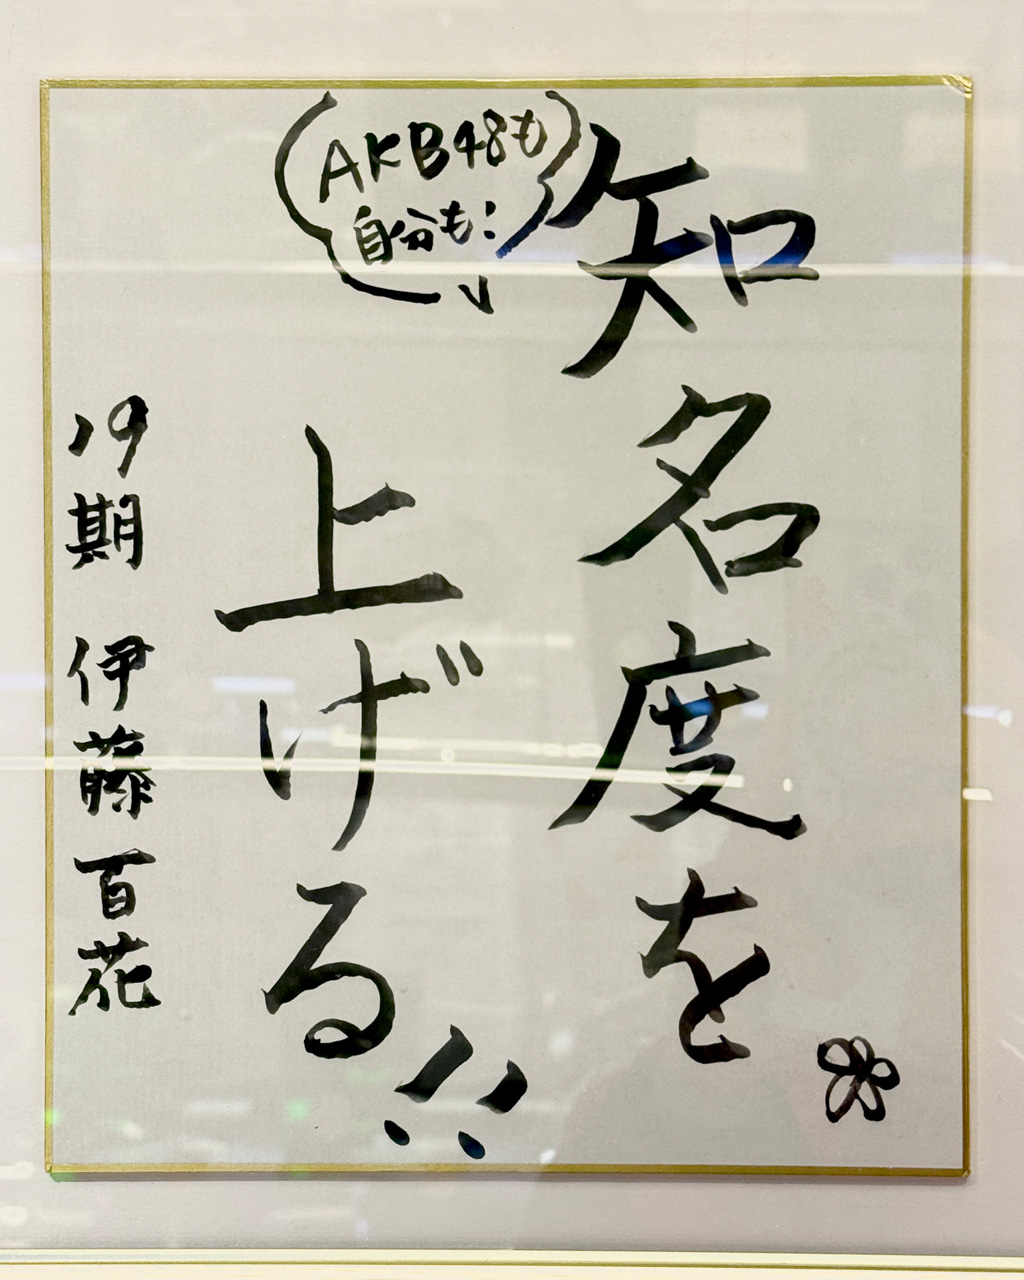 知名度を
上げる!!
AKB48も
自分も!
19期 伊藤百花